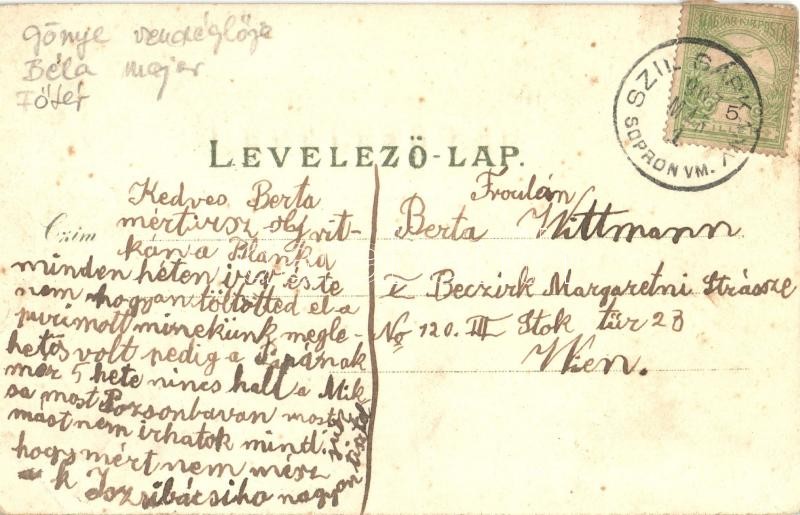 Gönye vendéglője
Béla major
Főtér
MAGYAR KIR. POSTA
5
SZIL SÁRKÁNY
SOPRON VM.
LEVELEZŐ-LAP.
Czim
Kedves Berta
mért irsz oly rit-
kán a Blanka
minden héten ir és te
nem hogyan töltötted el a
purimot minekünk megle-
hetős volt pedig a Papának
már 5 hete nincs hall a Mik
sa most Pozsonbavan most
mást nem irhatok mind.
hogy mért nem mész
k Iszribácsiho nagyon
Fraulän
Berta Wittmann
V Beczirk Margaretni Strässze
No 120. III Stok tür 23
Wien.